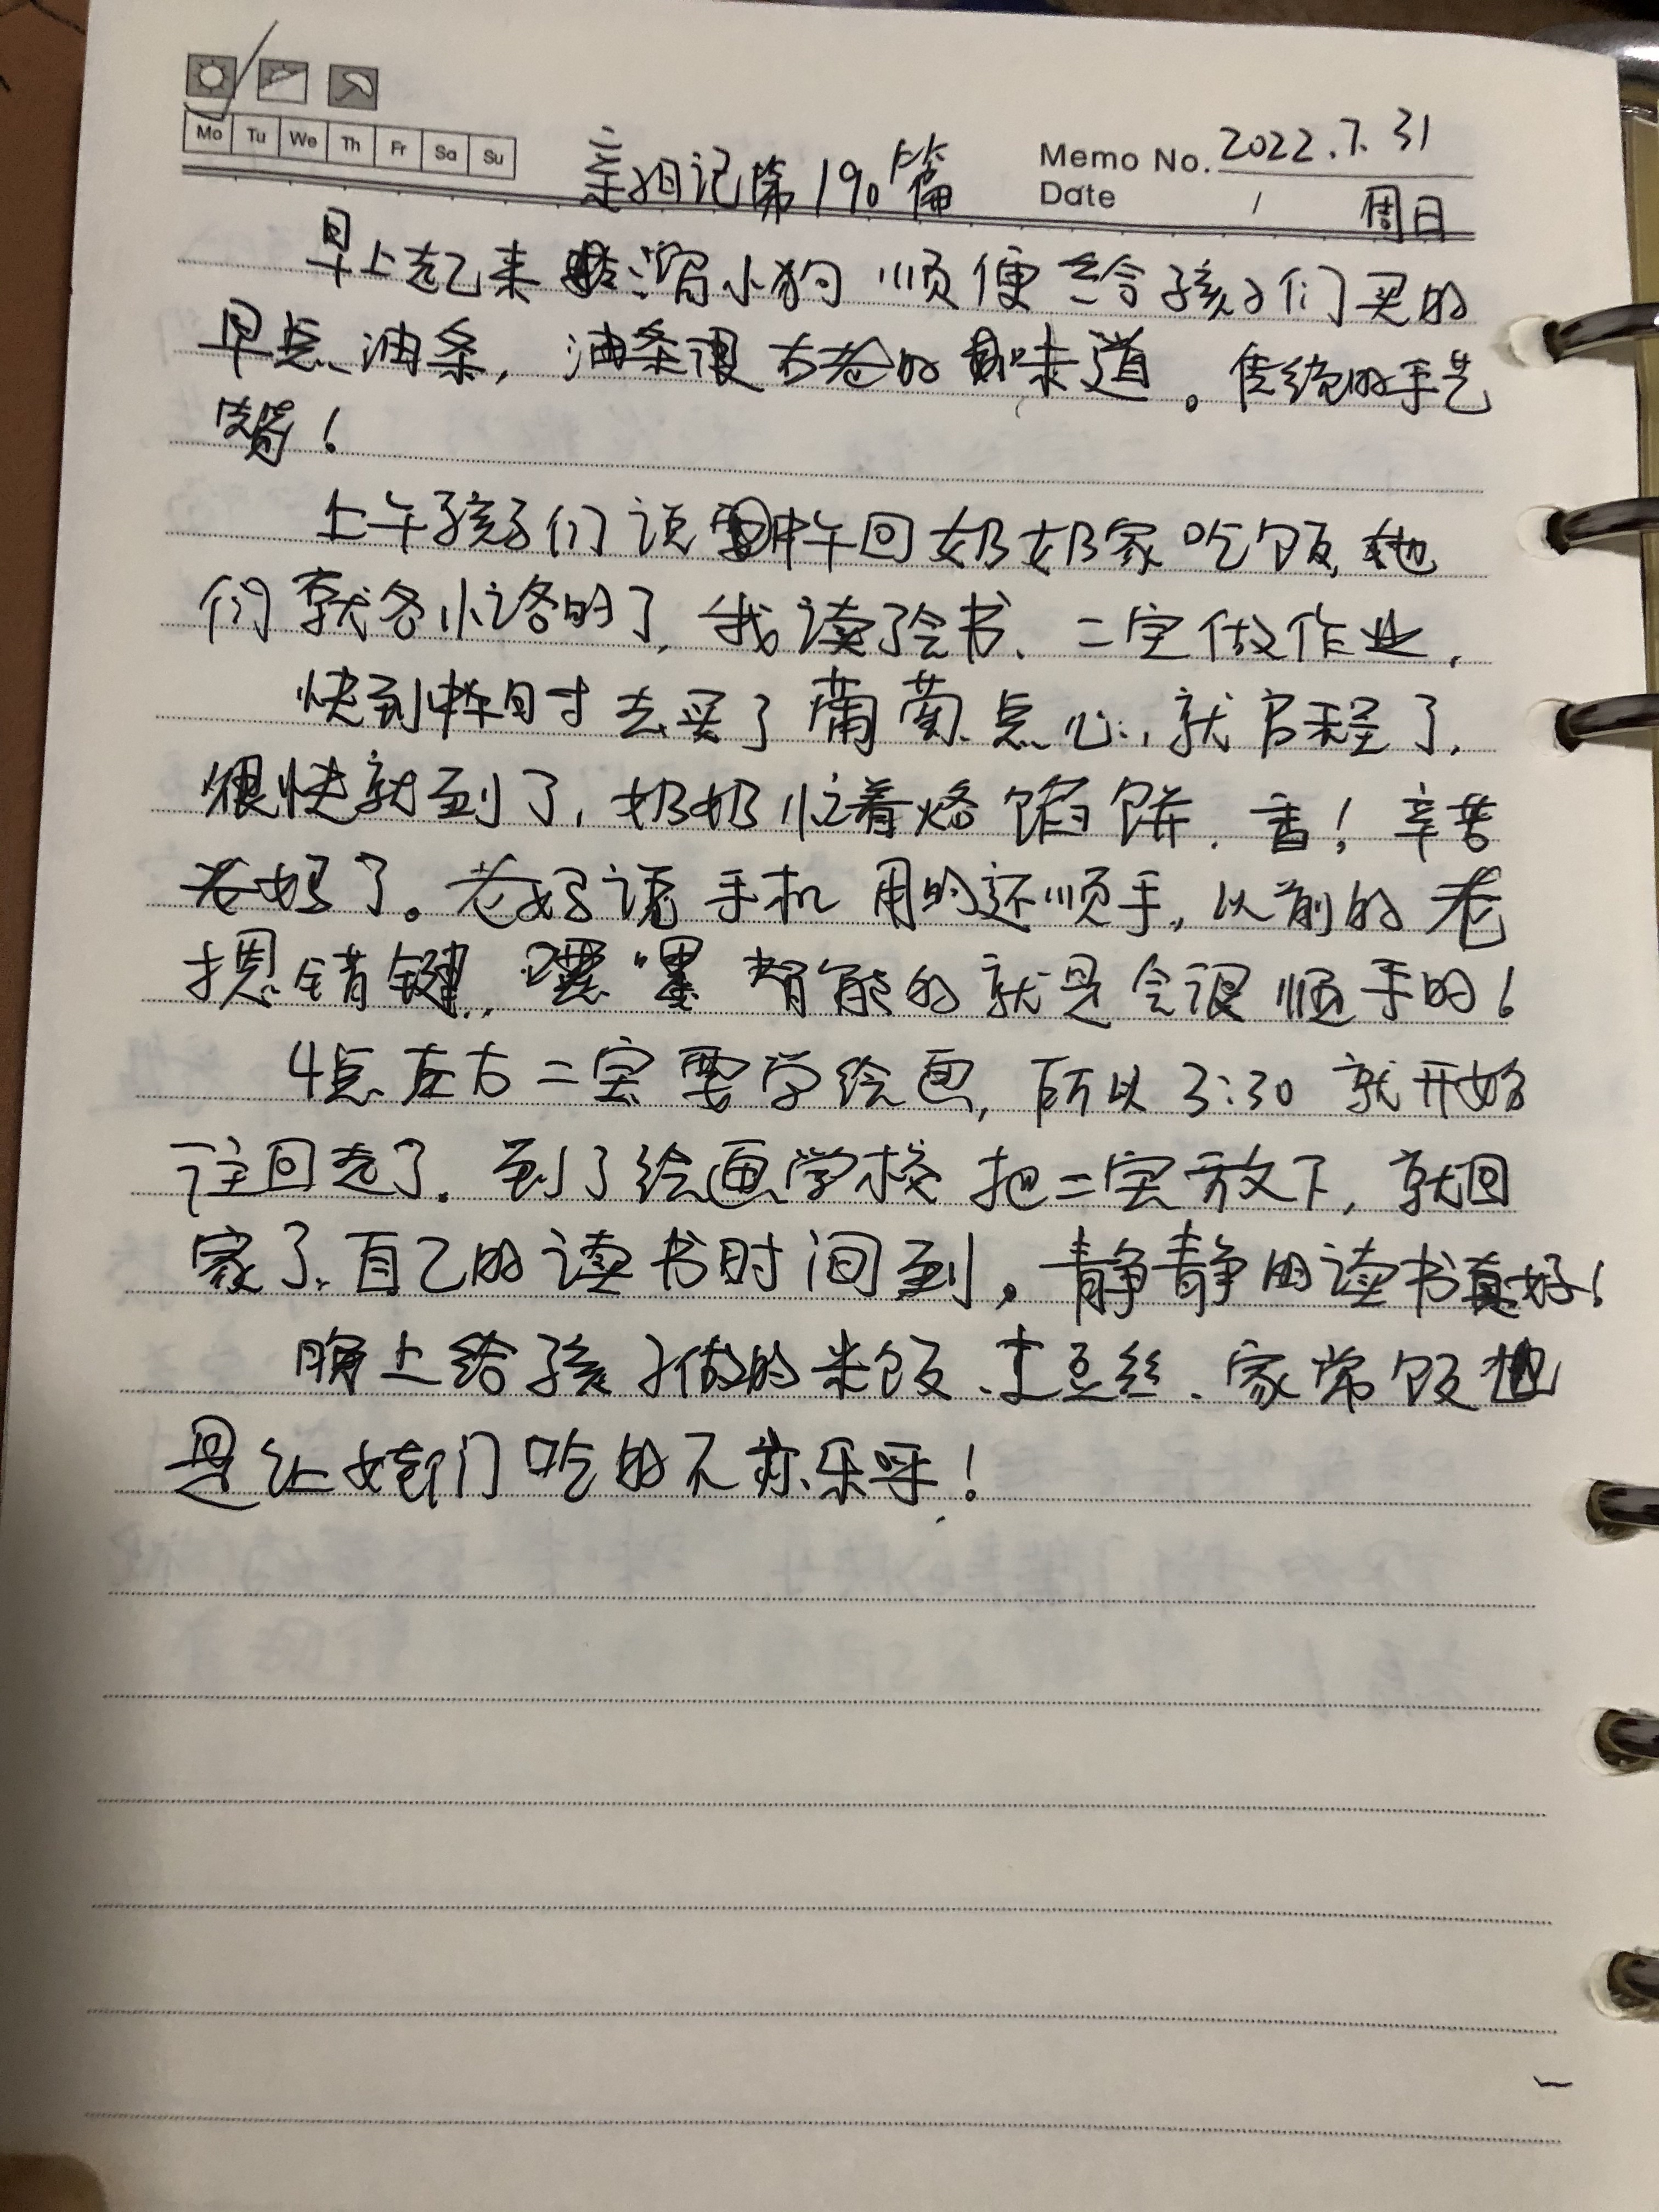 Mo Tu We Th Fr Sa Su
亲妈记第190篇
Memo No. 2022.7.31
Date / 周日
早上起来 溜小狗 顺便给孩子们买的
早点油条，油条很古老的味道。传统的手艺
上午孩子们说中午回奶奶家吃饭，她
们就各忙各的了，我读了会书、二宝做作业，
快到中午时去买了葡萄点心，就启程了，
很快就到了，奶奶忙着烙馅饼，香！辛苦
老妈了。老妈说手机用的还顺手，以前的老
摁错键，嘿嘿 智能的就是会很顺手的！
4点左右二宝要学绘画，所以3:30就开始
往回走了。到了绘画学校把二宝放下，就回
家了，自己的读书时间到，静静的读书真好！
晚上给孩子做的米饭、土豆丝、家常饭也
是让她们吃的不亦乐乎！